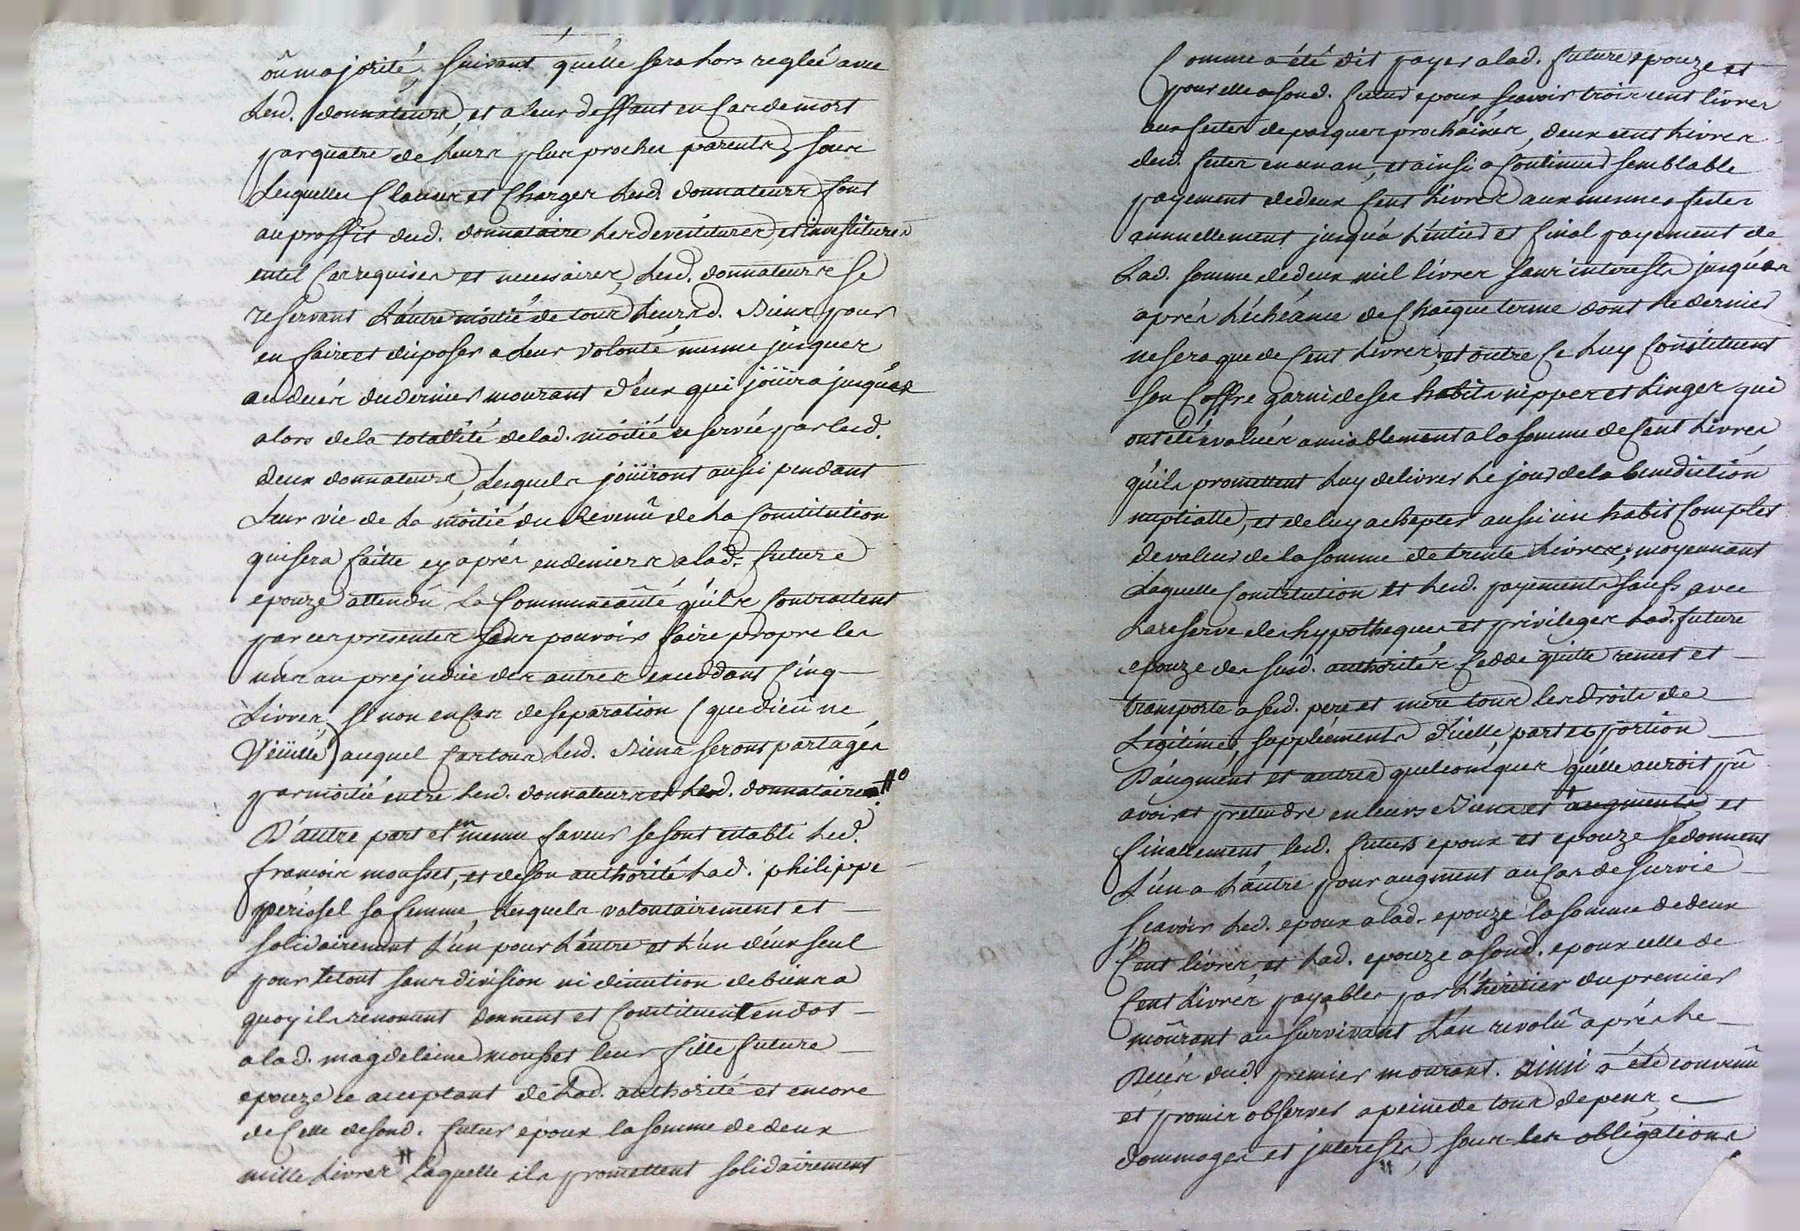 où majorité, suivant qu'elle sera lors reglée avec
lesd. donnateurs et a leur deffaut en cas de mort
par quatre de leurs plus proches parents, sous
lesquelles clauses et charges lesd. donnateurs font
au proffit dud. donnataire les devêtitures, et investitures
en tel cas requises et necessaires, lesd. donnateurs se
reservant l'autre moitié de tous leursd. biens pour
en faire et disposer a leur volonté mesme jusques
au decés du dernier mourant d'eux qui joüira jusques
alors de la totallité de lad. moitié reservée par lesd.
deux donnateurs, lesquels joüiront aussi pendant
leur vie de la moitié du revenû de la constitution
qui sera faitte cy aprés en deniers a lad. future
epouze attendû la communeauté qu'ils contractent
par ces presentes sans pouvoir faire propre les
uns au prejudice des autres excedant cinq
livres, si non en cas de separation (que dieu ne
veüille) auquel cas tous lesd. biens seront partagés
par moitié entre lesd. donnateurs et led. donnataire #°
D'autre part et en meme faveur se sont etabli led.
francois mousset, et de son authorité lad. philippe
perissel sa femme, lesquels volontairement et
solidairement l'un pour l'autre et l'un d'eux seul
pour le tout sans division ni discution de biens a
quoy ils renoncent donnent et constituent en dot
a lad. magdeleine mousset leur fille future
epouze ce acceptant de lad. authorité et encore
de celle de sond. futur epoux la somme de deux
mille livres laquelle ils promettent solidairement
Comme a été dit payer a lad. future epouze et
pour elle a sond. futur epoux scavoir trois cent livres
aux festes de pasques prochaines, deux cent livres
desd. festes en un an, et ainsi a continuer semblable
payement de deux cent livres aux mesmes festes
annuellement jusqu'a l'entier et final payement de
lad. somme de deux mil livres sans interests jusques
aprés l'échéance de chaque terme dont le dernier
ne sera que de cent livres, et outre ce luy constituent
son coffre garni de ses habits nippes et linges qui
ont été evalués amiablement a la somme de cent livres
qu'ils promettent luy delivrer le jour de la benediction
nuptialle, et de luy achepter aussi un habit complet
de valeur de la somme de trente livres, moyennant
laquelle constitution et lesd. payements faits avec
la reserve des hypotheques et privileges lad. future
epouze des susd. authorités cedde quitte remet et
transporte a sesd. pere et mere tous les droits de
legitimes, suppléments d'icelle, part et portion
d'augment et autres quelconques qu'elle auroit pû
avoir et pretendre en leurs biens et augments et
finalement lesd. futurs epoux et epouze se donnent
l'un a l'autre pour augment au cas de survie
scavoir led. epoux a lad. epouze la somme de deux
cent livres, et lad. epouze a sond. epoux celle de
cent livres payables par l'héritier du premier
mourant au survivant l'an revolû aprés le
decés dud. premier mourant. ainsi a été convenû
et promis observer a peine de tous depens,
dommages et interests, sous les obligations